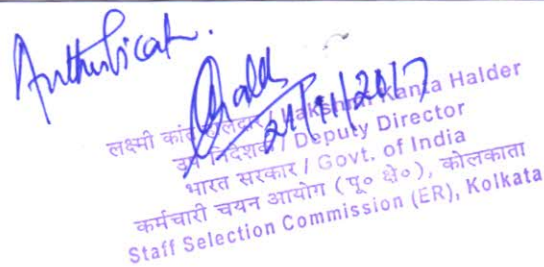 लक्ष्मी कांत हालदार / Lakshmi Kanta Halder
उप निदेशक / Deputy Director
भारत सरकार / Govt. of India
कर्मचारी चयन आयोग (पू० क्षे०), कोलकाता
Staff Selection Commission (ER), Kolkata